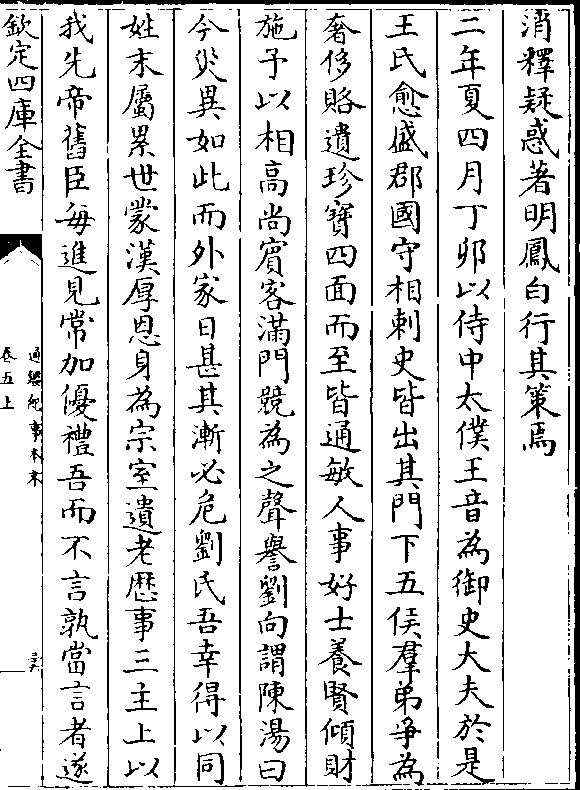 消釋疑惑著明鳳白行其策焉
二年夏四月丁卯以侍中太僕王音為御史大夫於是
王氏愈盛郡國守相刺史皆出其門下五侯羣弟爭為
奢侈賂遺珍寶四面而至皆通敏人事好士養賢傾財
施予以相高尚賓客滿門競為之聲譽劉向謂陳湯曰
今災異如此而外家日甚其漸必危劉氏吾幸得以同
姓末屬累世蒙漢厚恩身為宗室遺老歴事三主上以
我先帝舊臣每進見常加優禮吾而不言孰當言者遂
欽定四庫全書
通鑑紀事本末
卷五上